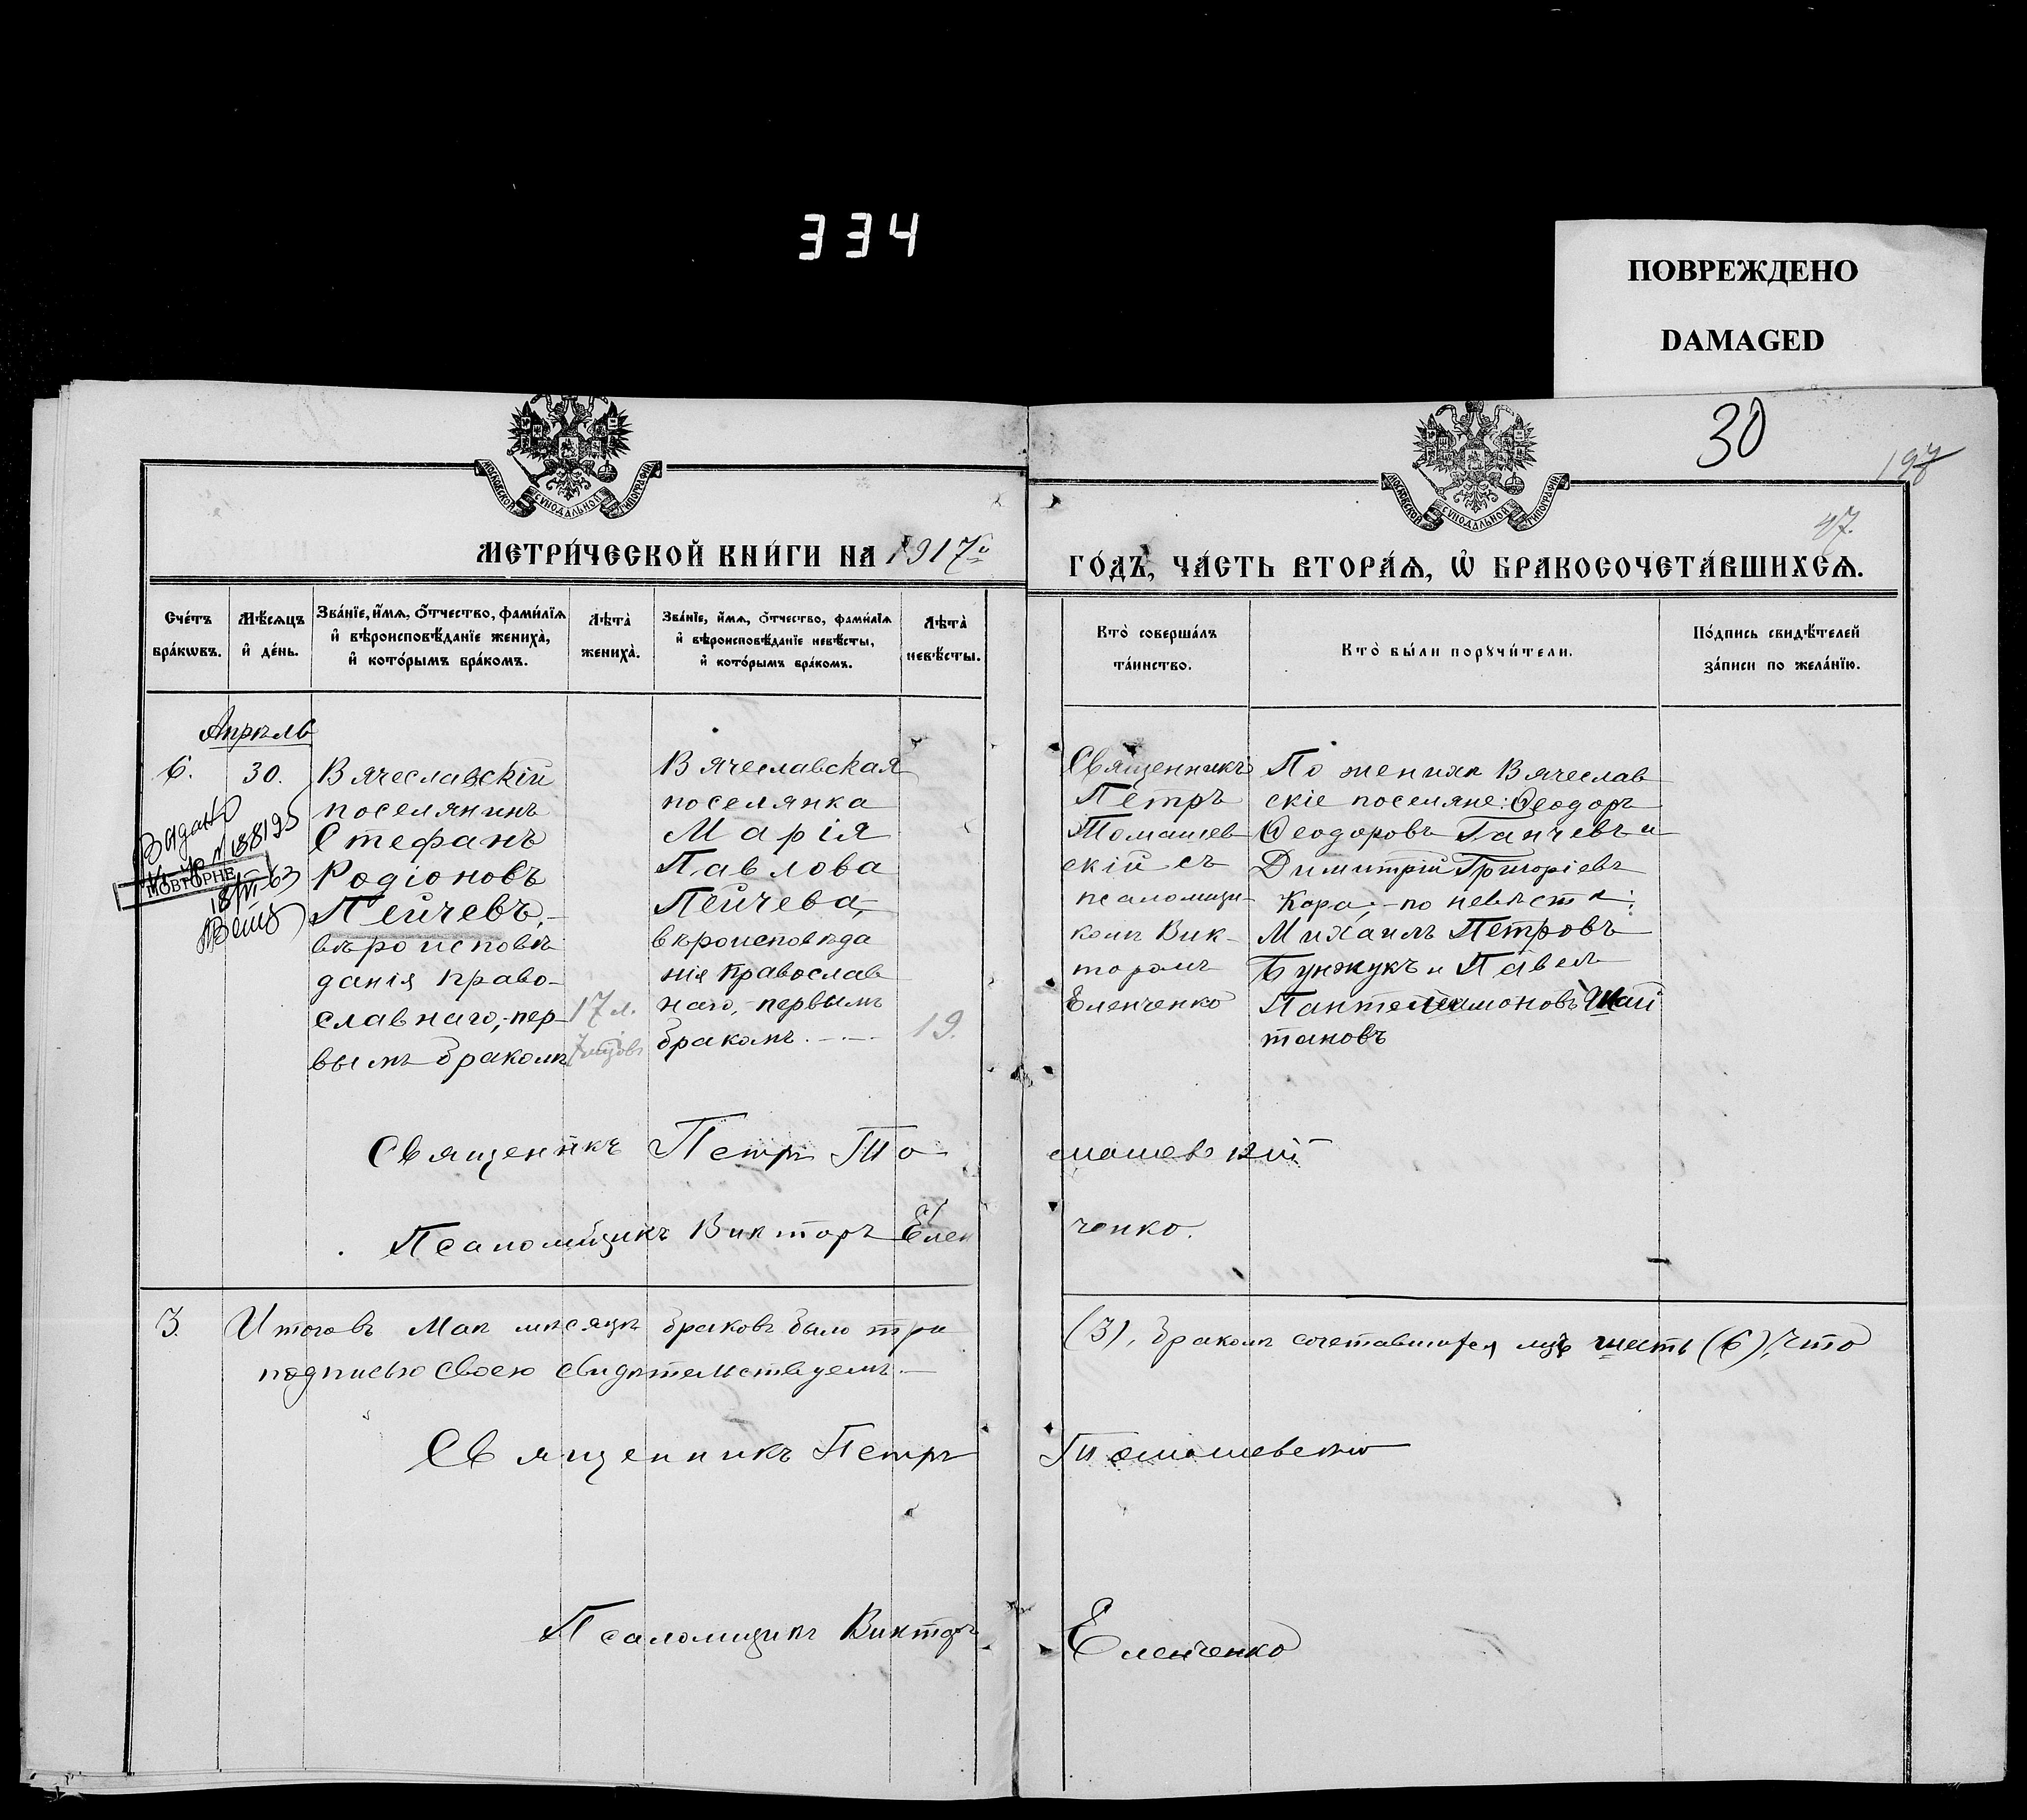 334
ПОВРЕЖДЕНО
DAMAGED
30
197
47.
МОСКОВСКОЙ СѴНОДАЛЬНОЙ ТИПОГРАФІИ
МОСКОВСКОЙ СѴНОДАЛЬНОЙ ТИПОГРАФІИ
МЕТРИ́ЧЕСКОЙ КНИ́ГИ НА 1917й
ГО́ДЪ, ЧА́СТЬ ВТОРА́Ѧ, Ѽ БРАКОСОЧЕТА́ВШИХСѦ.
Сче́тъ бра́кѡвъ.
Мѣ́сѧцъ и҆ де́нь.
Зва́нїе, и҆́мѧ, ѻ҆́тчество, фами́лїѧ
и҆ вѣроисповѣ́данїе жениха̀,
и҆ кото́рымъ бра́комъ.
Лѣта̀ жениха̀.
Зва́нїе, и҆́мѧ, ѻ҆́тчество, фами́лїѧ
и҆ вѣроисповѣ́данїе невѣ́сты,
и҆ кото́рымъ бра́комъ.
Лѣта̀ невѣ́сты.
Кто̀ соверша́лъ та́инство.
Кто̀ бы́ли порꙋчи́тели.
По́дпись свидѣ́телей
за́писи по жела́нїю.
Апрѣль
6.
30.
Выдано
188195
ПОВТОРНЕ
18/VI-63
Вячеславскій
поселянинъ
Стефанъ
Родіоновъ
Пейчевъ,-
вѣроисповѣ
данія право-
славнаго,-пер-
вымъ бракомъ
17 л.
7 мцовъ
Вячеславская
поселянка
Марія
Павлова
Пейчева,-
вѣроисповѣда
нія православ
наго,-первымъ
бракомъ.
19.
Священникъ
Петръ
Томашев
скій съ
псаломщи-
комъ Вик-
торомъ
Еленченко
По женихѣ Вячеслав
скіе поселяне: Ѳеодоръ
Ѳеодоровъ Ганчевъ и
Димитрій Григоріевъ
Кара;-по невѣстѣ:
Михаилъ Петровъ
Бунжукъ и Павелъ
Пантелеимоновъ Шай
тановъ
Священникъ Петръ Томашевскій
Псаломщикъ Викторъ Еленченко.
3. Итого въ Маѣ мѣсяцѣ браковъ было три (3), бракомъ сочетавшихся лицъ шесть (6), что
подписью своею свидѣтельствуемъ.-
Священникъ Петръ Томашевскій
Псаломщикъ Викторъ Еленченко